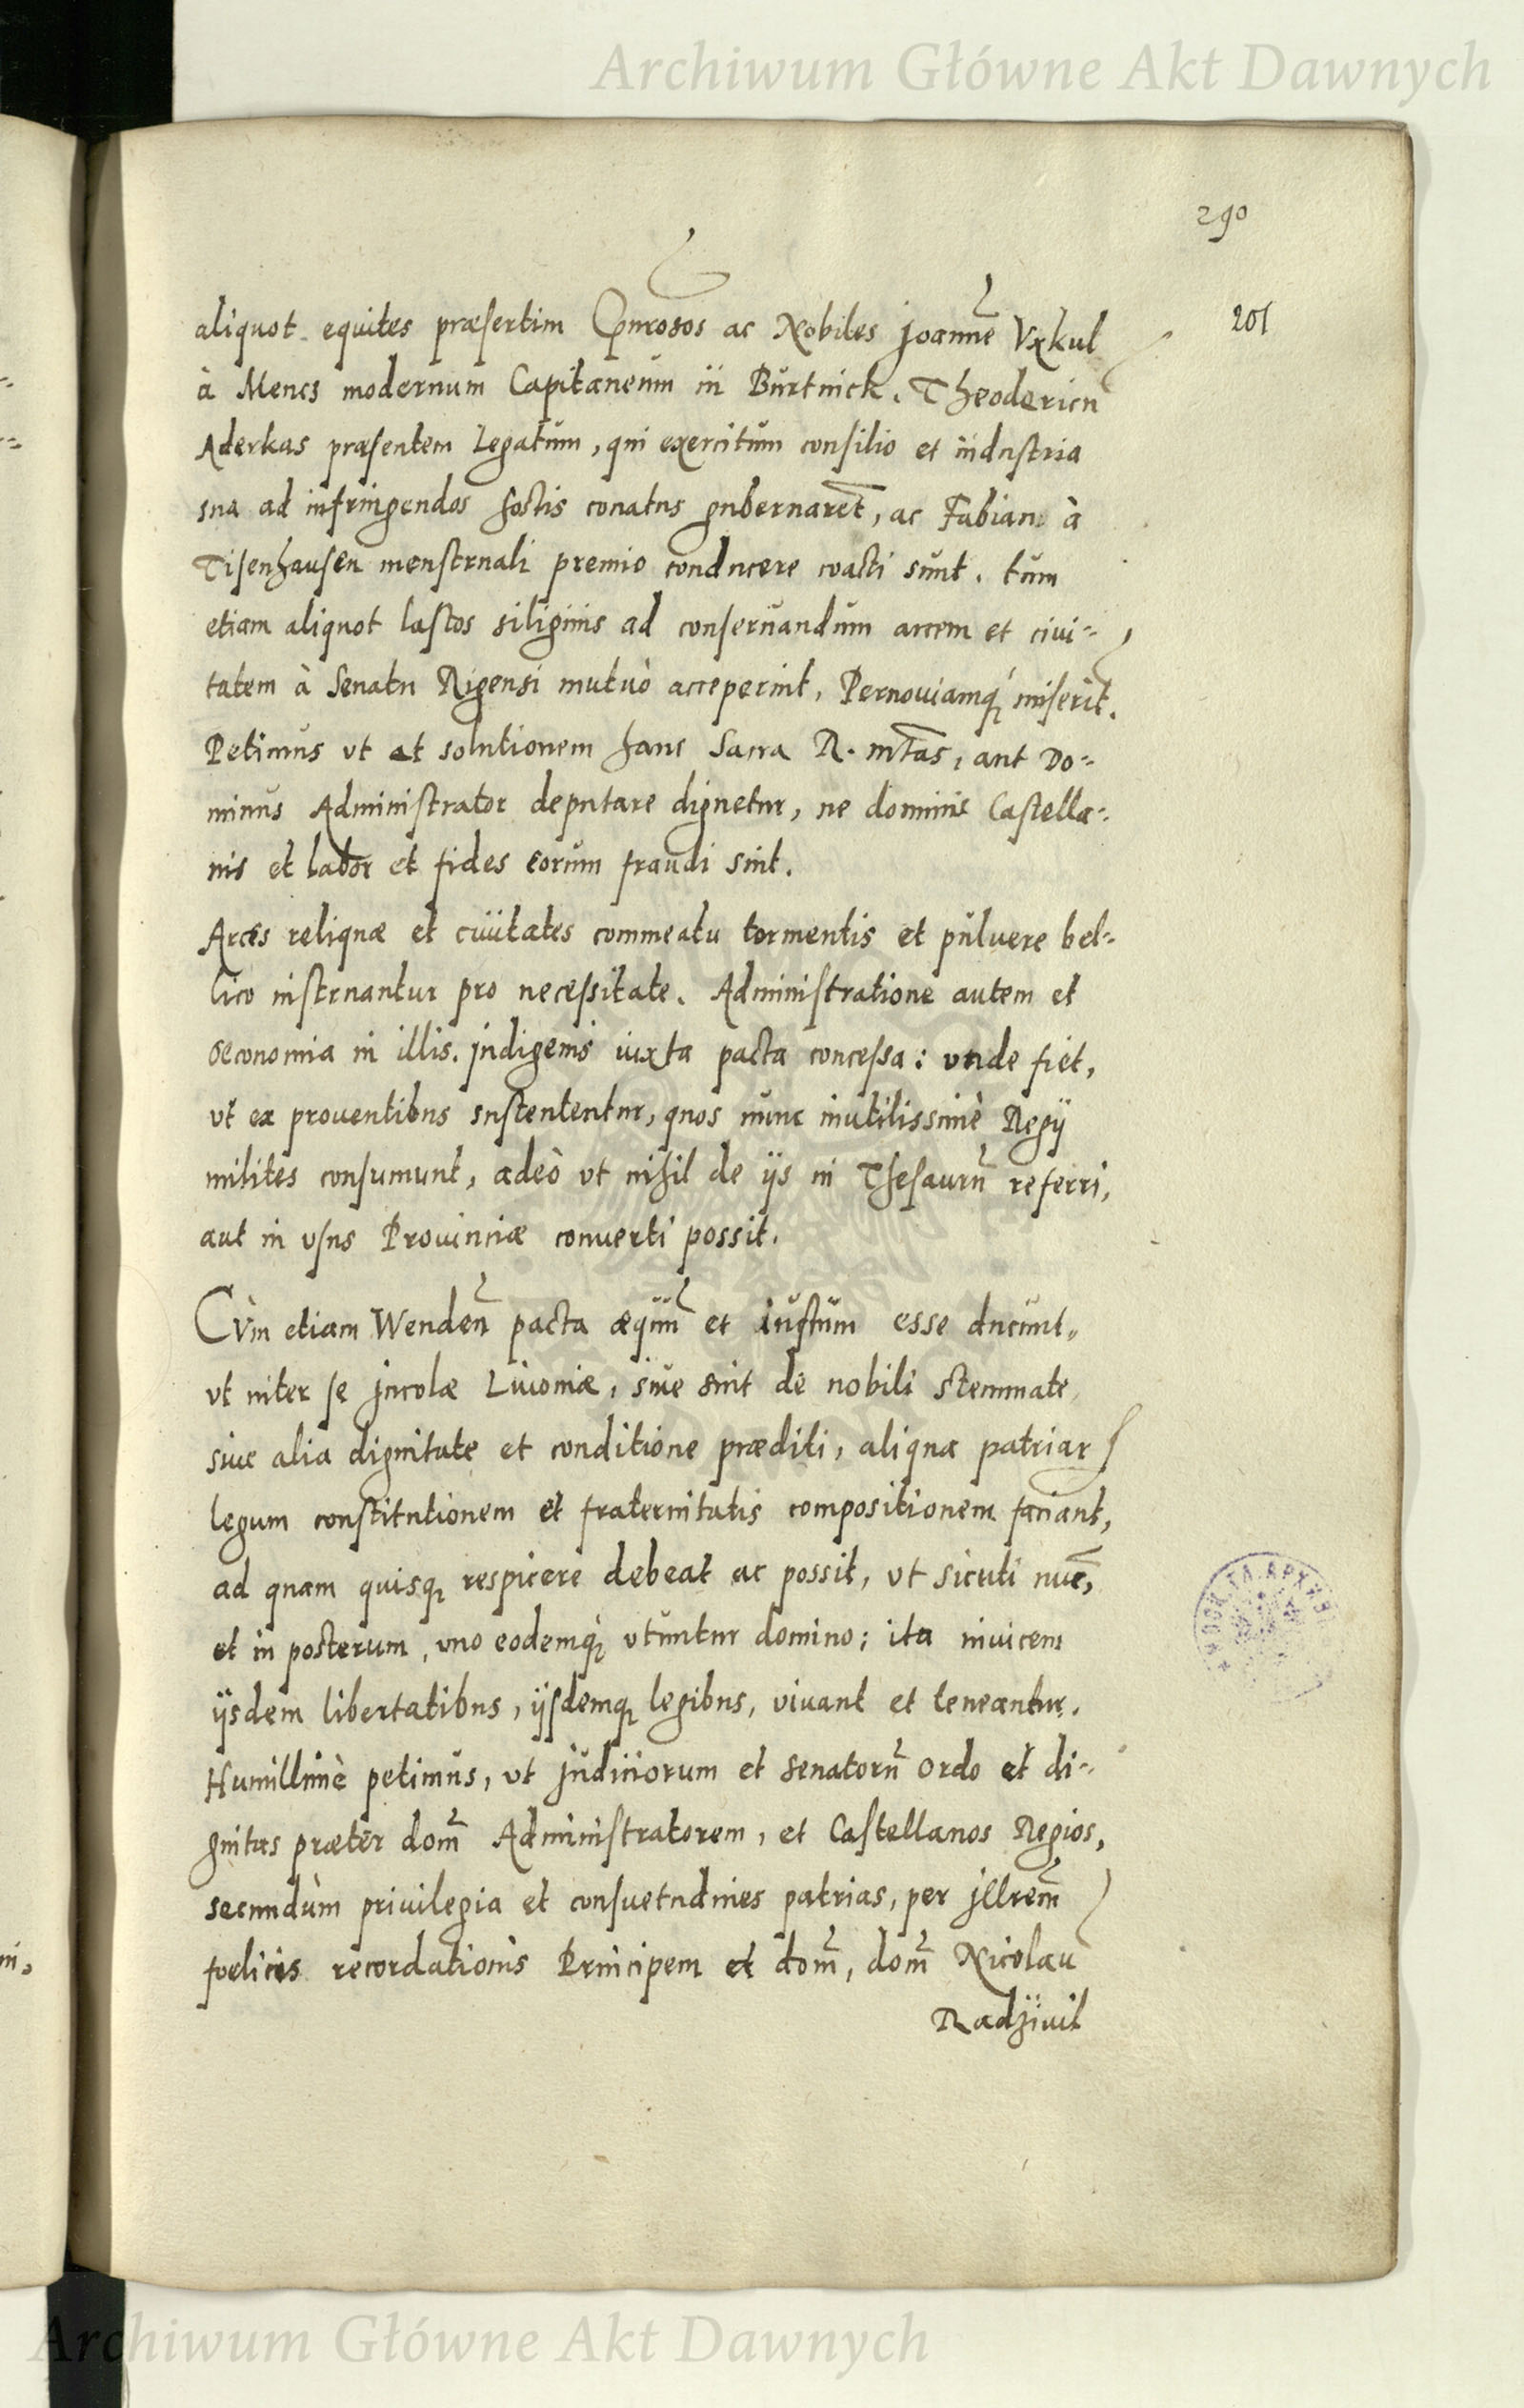 Archiwum Główne Akt Dawnych
290
201
aliquot equites præsertim Gnrosos ac Nobiles Joannē Vxkul
à Mencs modernum Capitaneum in Burtnick. Theodericū
Aderkas præsentem Legatum, qui exercitum consilio et industria
sua ad infringendos hostis conatus gubernaret, ac Fabianū à
Tisenhausen menstruali premio conducere coacti sunt. tum
etiam aliquot lastos siliginis ad conseruandum arcem et civi=
tatem à Senatu Rigensi mutuò acceperint, Pernouiamq́ miserit.
Petimus vt et solutionem hanc Sacra R. mtas, aut Do=
minus Administrator deputare dignetur, ne dominis Castella=
nis et labor et fides eorum fraudi sint.
Arces reliquæ et ciuitates commeatu tormentis et puluere bel=
lico instruantur pro necessitate. Administratione autem et
œconomia in illis. indigenis iuxta pacta concessa: vnde fiet,
vt ex prouentibus sustententur, quos nunc inutilissimè Regij
milites consumunt, adeò vt nihil de ijs in Thesaurū referri,
aut in vsus Prouinciæ conuerti possit.
Cùm etiam Wendeñ pacta æquū et iustum esse ducunt,
vt inter se Incolæ Liuoniæ, siue sint de nobili stemmate
siue alia dignitate et conditione præditi, aliqua patriar
legum constitutionem et fraternitatis compositionem faciant,
ad quam quisq respicere debeat ac possit, vt sicuti nūc,
et in posterum, vno eodemq́ vtuntur domino; ita inuicem
ijsdem libertatibus, ijsdemq legibus, viuant et teneantur.
Humillimè petimus, vt Judiciorum et senatorū ordo et di=
gnitas præter dom̃ Administratorem, et Castellanos Regios,
secundùm priuilegia et consuetudines patrias, per Jllrem̃
fœlicis recordationis Principem et dom̃, dom̃ Nicolau
Radziuil
Archiwum Główne Akt Dawnych